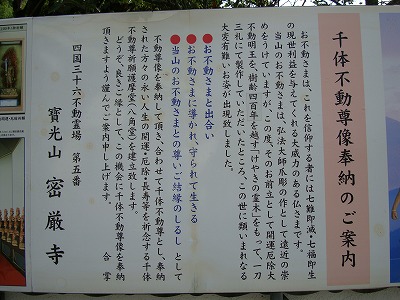 千体不動尊像奉納のご案内
お不動さまは、これを信仰する者には七難即滅・七福即生
の現世利益を与えてくれる大威力のある仏さまです。
当山のお不動さまは、弘法大師爪彫の作として遠近の崇
めをうけていますが、この度、そのお前立として開運厄除大
不動明王を、樹齢四百年を越す「けやきの霊木」をもって、一刀
三礼にて製作していただいたところ、この世に類いまれなる
大変有難いお姿が出現致しました。
●お不動さまと出合い
●お不動さまに導かれ、守られて生きる
●当山のお不動さまとの尊いご結縁のしるし として
不動尊像を奉納して頂き、合わせて千体不動尊とし、奉納
された方々の永い人生の開運・厄除・長寿等を祈念する千体
不動尊祈願護摩堂(八角堂)を建立致します。
どうぞ、良きご縁として、この機会に千体不動尊像を奉納
頂きますよう謹んでご案内申し上げます。
合掌
四国三十六不動霊場 第五番
寳光山 密厳寺